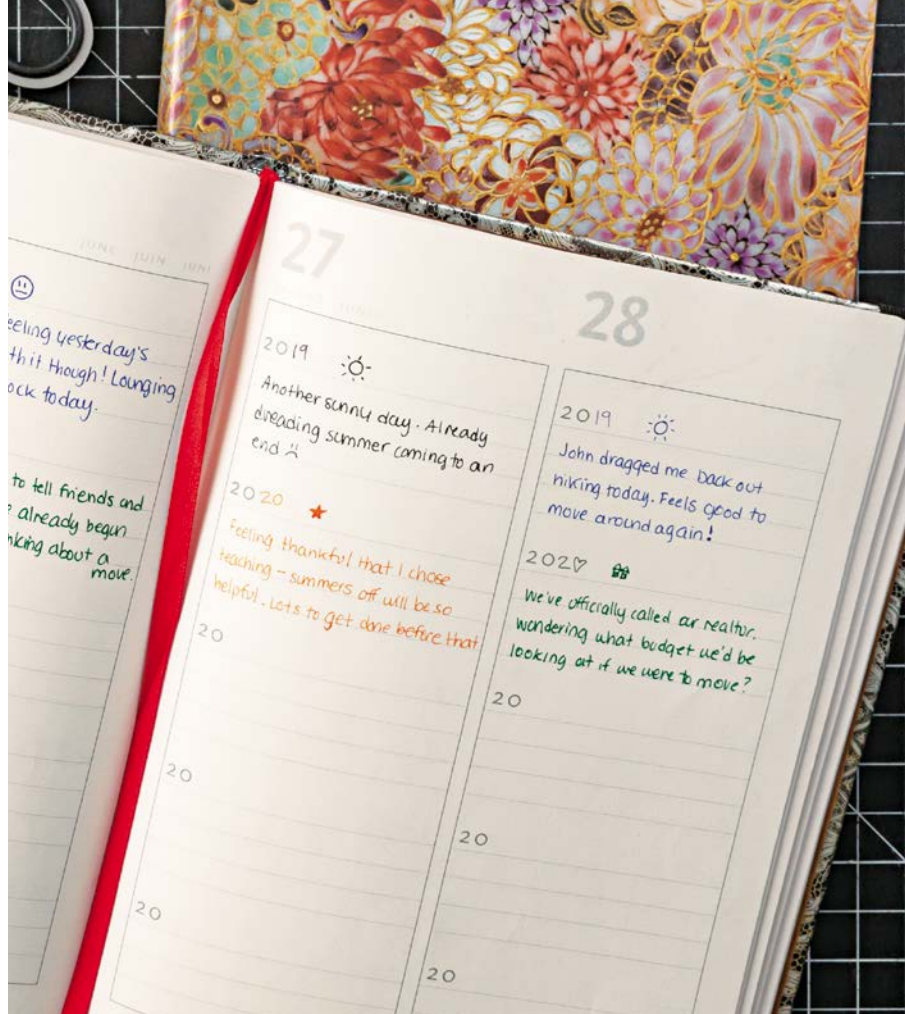 JUNE JUIN JUNI
eeling yesterday's
th it though! Lounging
ock today.
to tell friends and
already begun
nking about a
move.
27
2019
Another sunny day. Already
dreading summer coming to an
end
2020
Feeling thankful that I chose
teaching - summers off will be so
helpful. Lots to get done before that
20
20
20
28
2019
John dragged me back out
hiking today. Feels good to
move around again!
202♡
We've officially called ar realtor.
wondering what budget we'd be
looking at if we were to move?
20
20
20